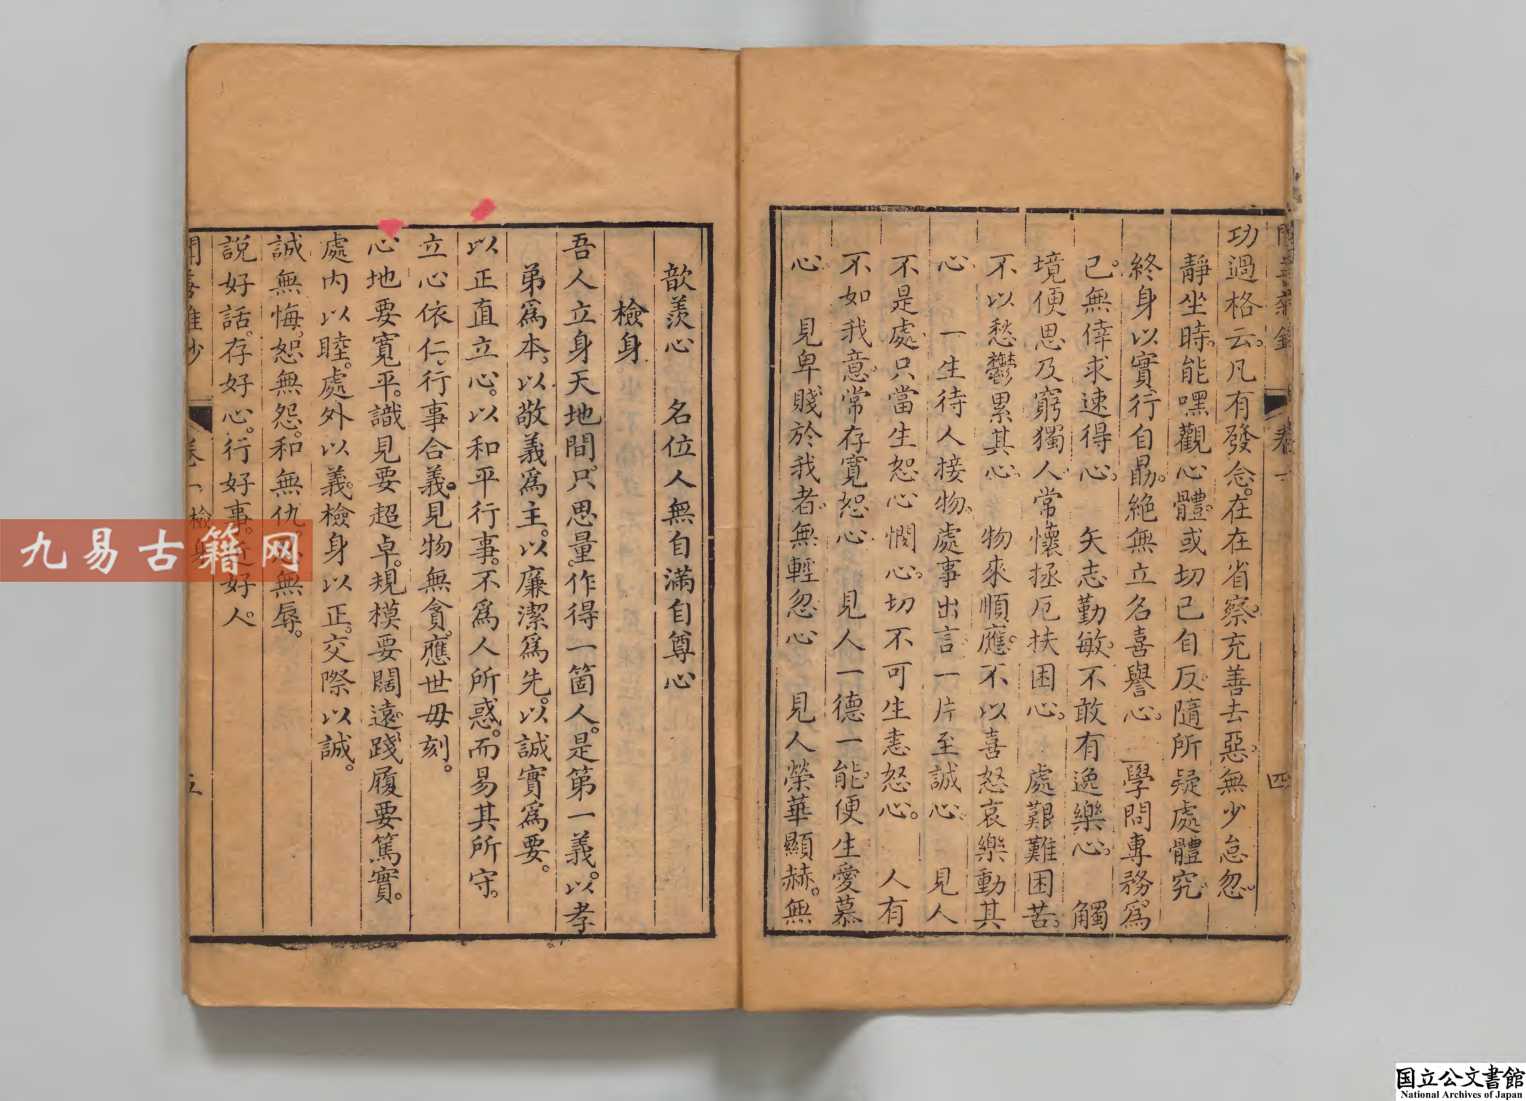 功過格云凡有發念在在省察充善去惡無少怠忽
靜坐時能嘿觀心體或切己自反隨所疑處體究
終身以實行自勗絕無立名喜譽心 學問專務為
己無倖求速得心 矢志勤敏不敢有逸樂心 觸
境便思及窮獨人常懷拯厄扶困心 處艱難困苦
不以愁鬱累其心 物來順應不以喜怒哀樂動其
心 一生待人接物處事出言一片至誠心 見人
不是處只當生恕心憫心切不可生恚怒心 人有
不如我意常存寬恕心 見人一德一能便生愛慕
心 見卑賤於我者無輕忽心 見人榮華顯赫無
卷一
四
歆羨心 名位人無自滿自尊心
檢身
吾人立身天地間只思量作得一箇人是第一義以孝
弟為本以敬義為主以廉潔為先以誠實為要
以正直立心以和平行事不為人所惑而易其所守
立心依仁行事合義見物無貪應世毋刻
心地要寬平識見要超卓規模要闊遠踐履要篤實
處內以睦處外以義檢身以正交際以誠
誠無悔恕無怨和無仇無辱
說好話存好心行好事近好人
卷一 檢
五
九易古籍网
国立公文書館
National Archives of Japan